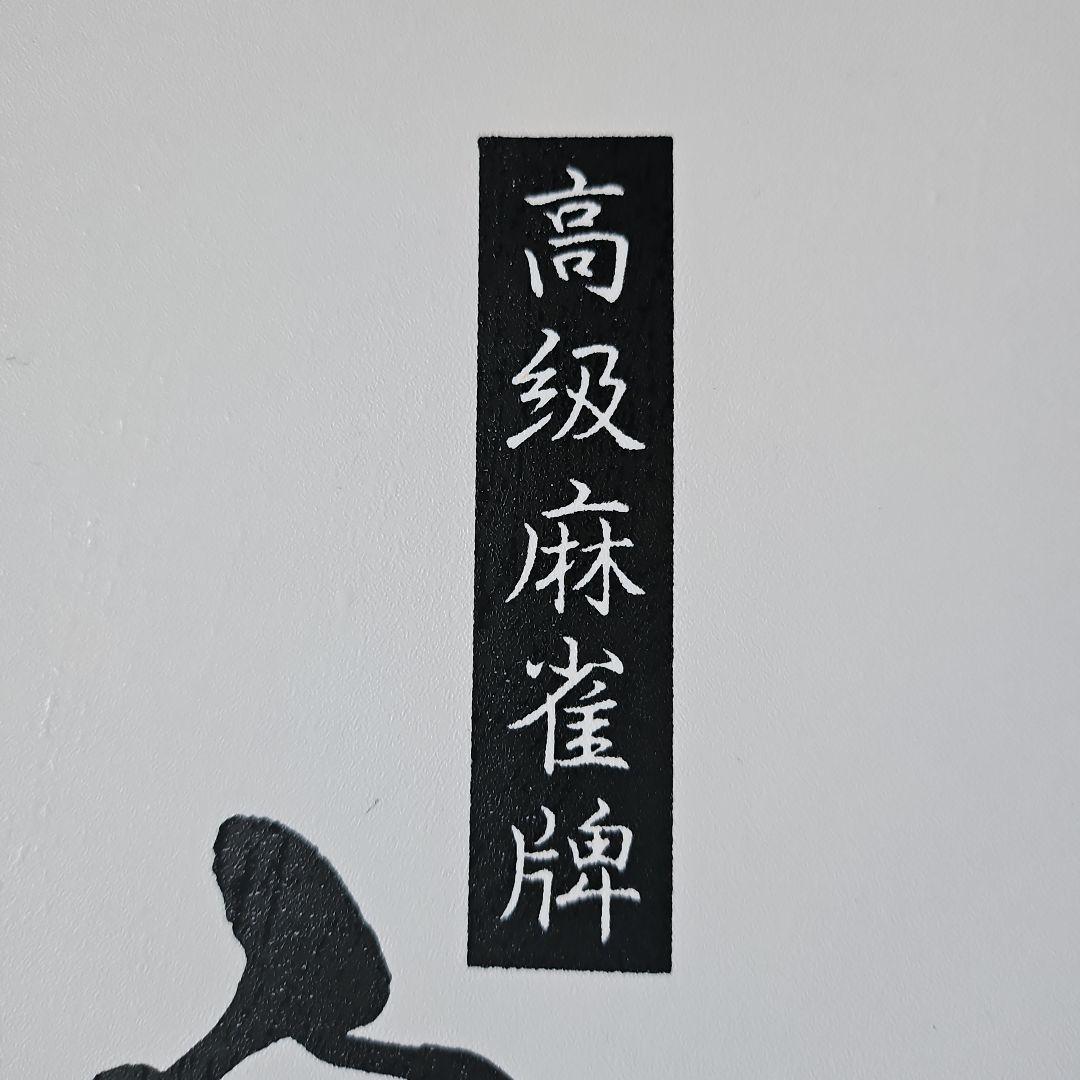 高级麻雀牌